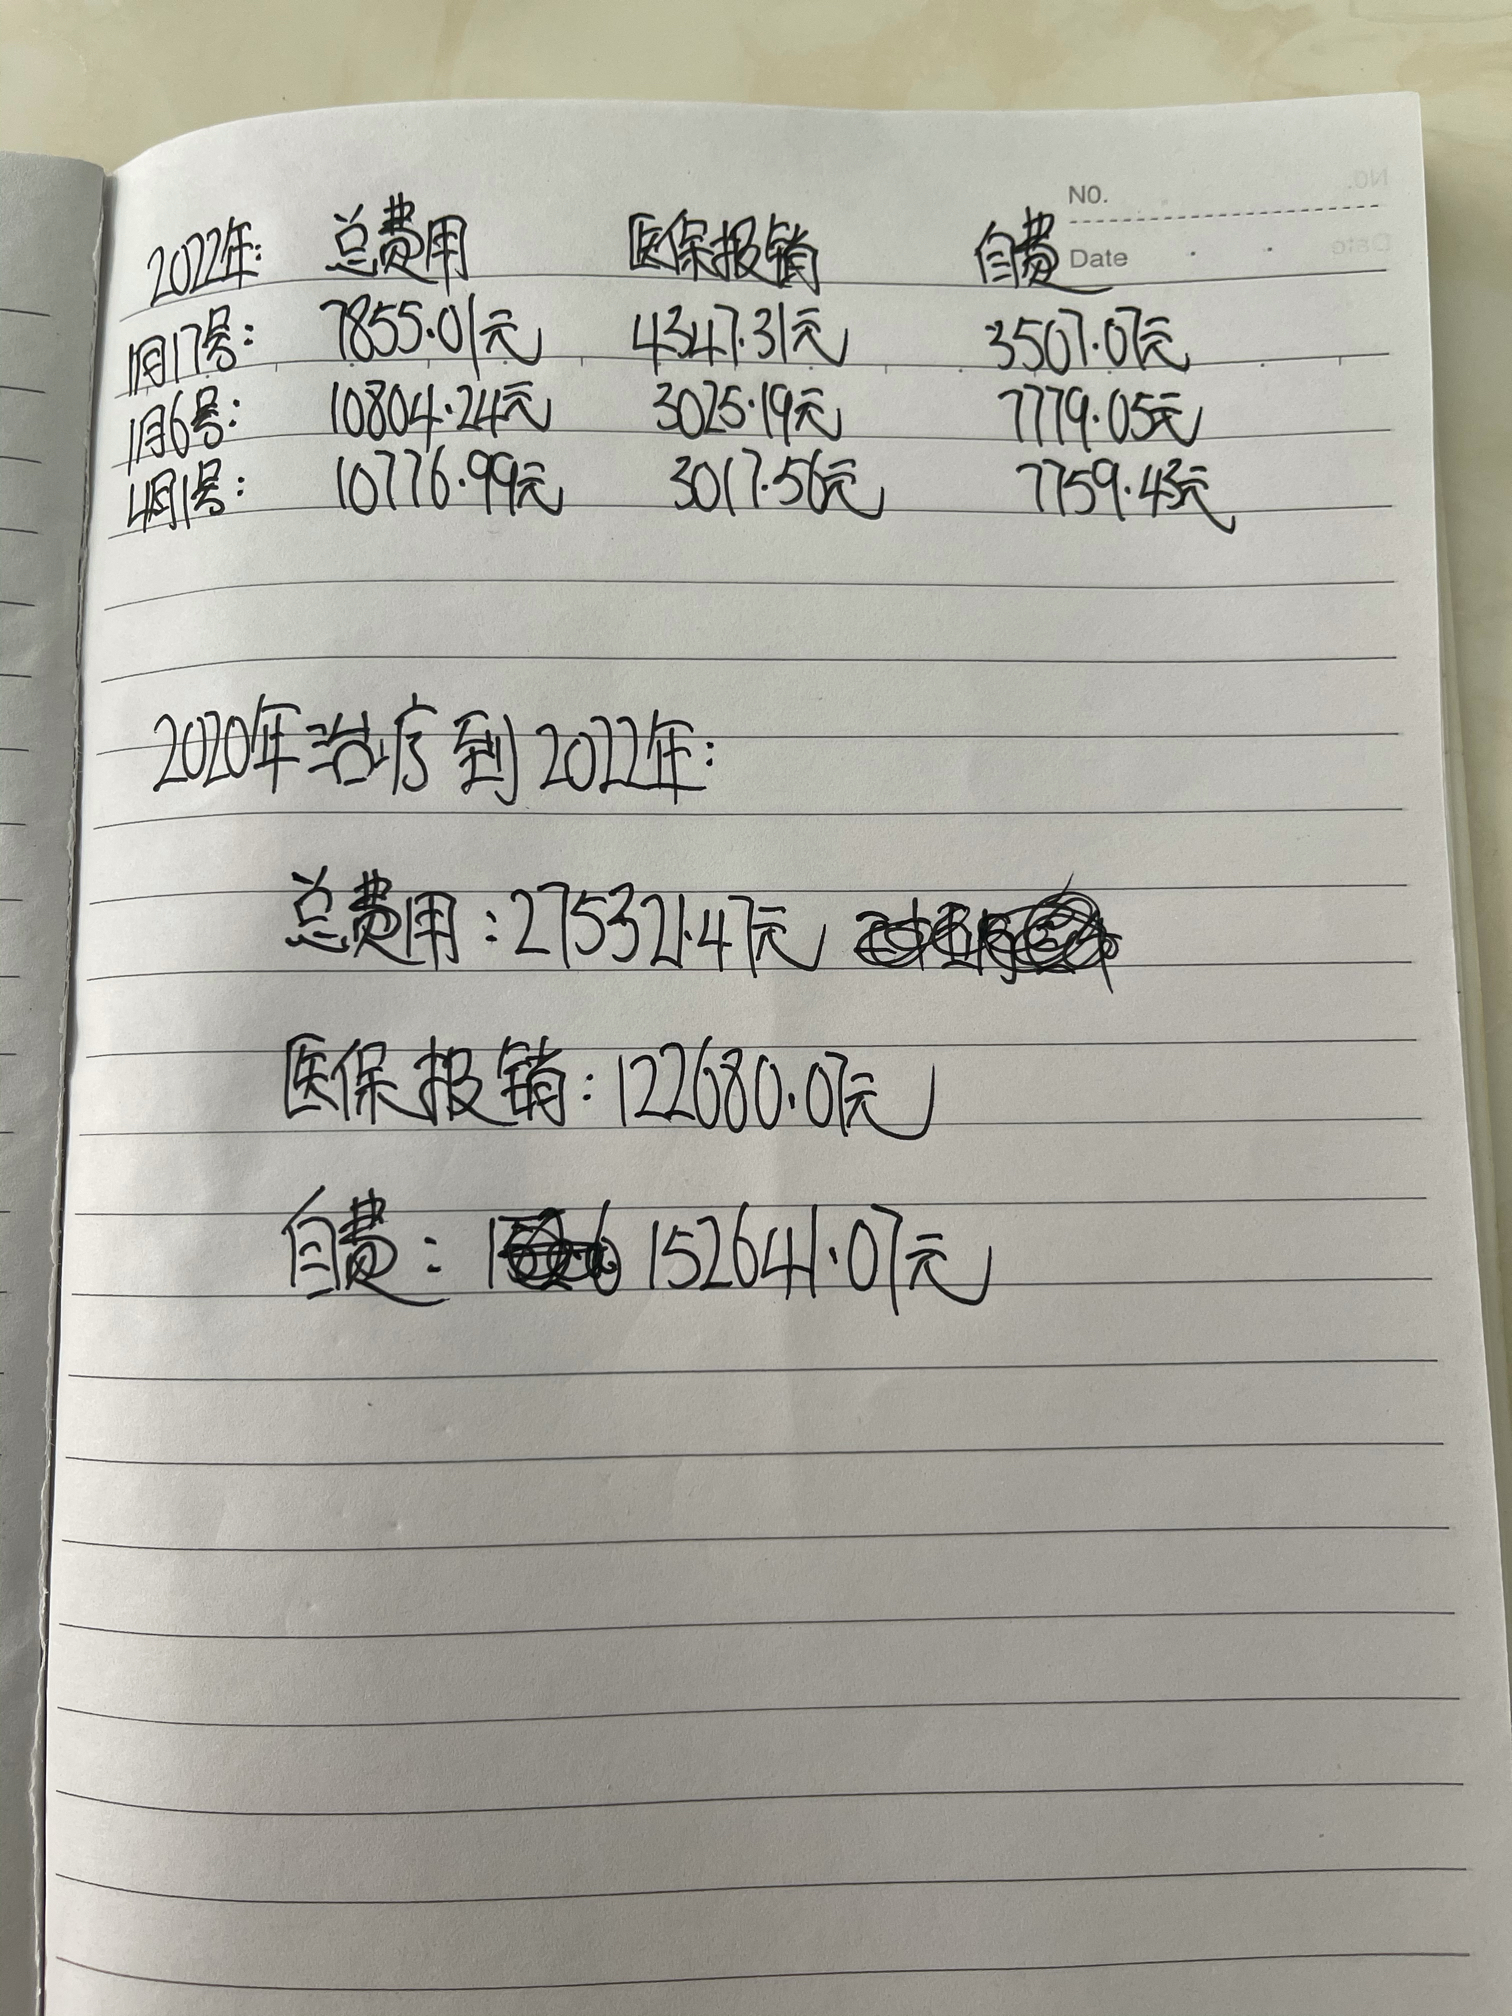 NO.
Date
2022年: 总费用 医保报销 自费
1月17号: 7855.01元 4347.31元 3507.07元
1月6号: 10804.24元 3025.19元 7779.05元
4月1号: 10776.99元 3017.56元 7759.43元
2020年治疗到2022年:
总费用:275321.47元
医保报销:122680.07元
自费: 152641.07元